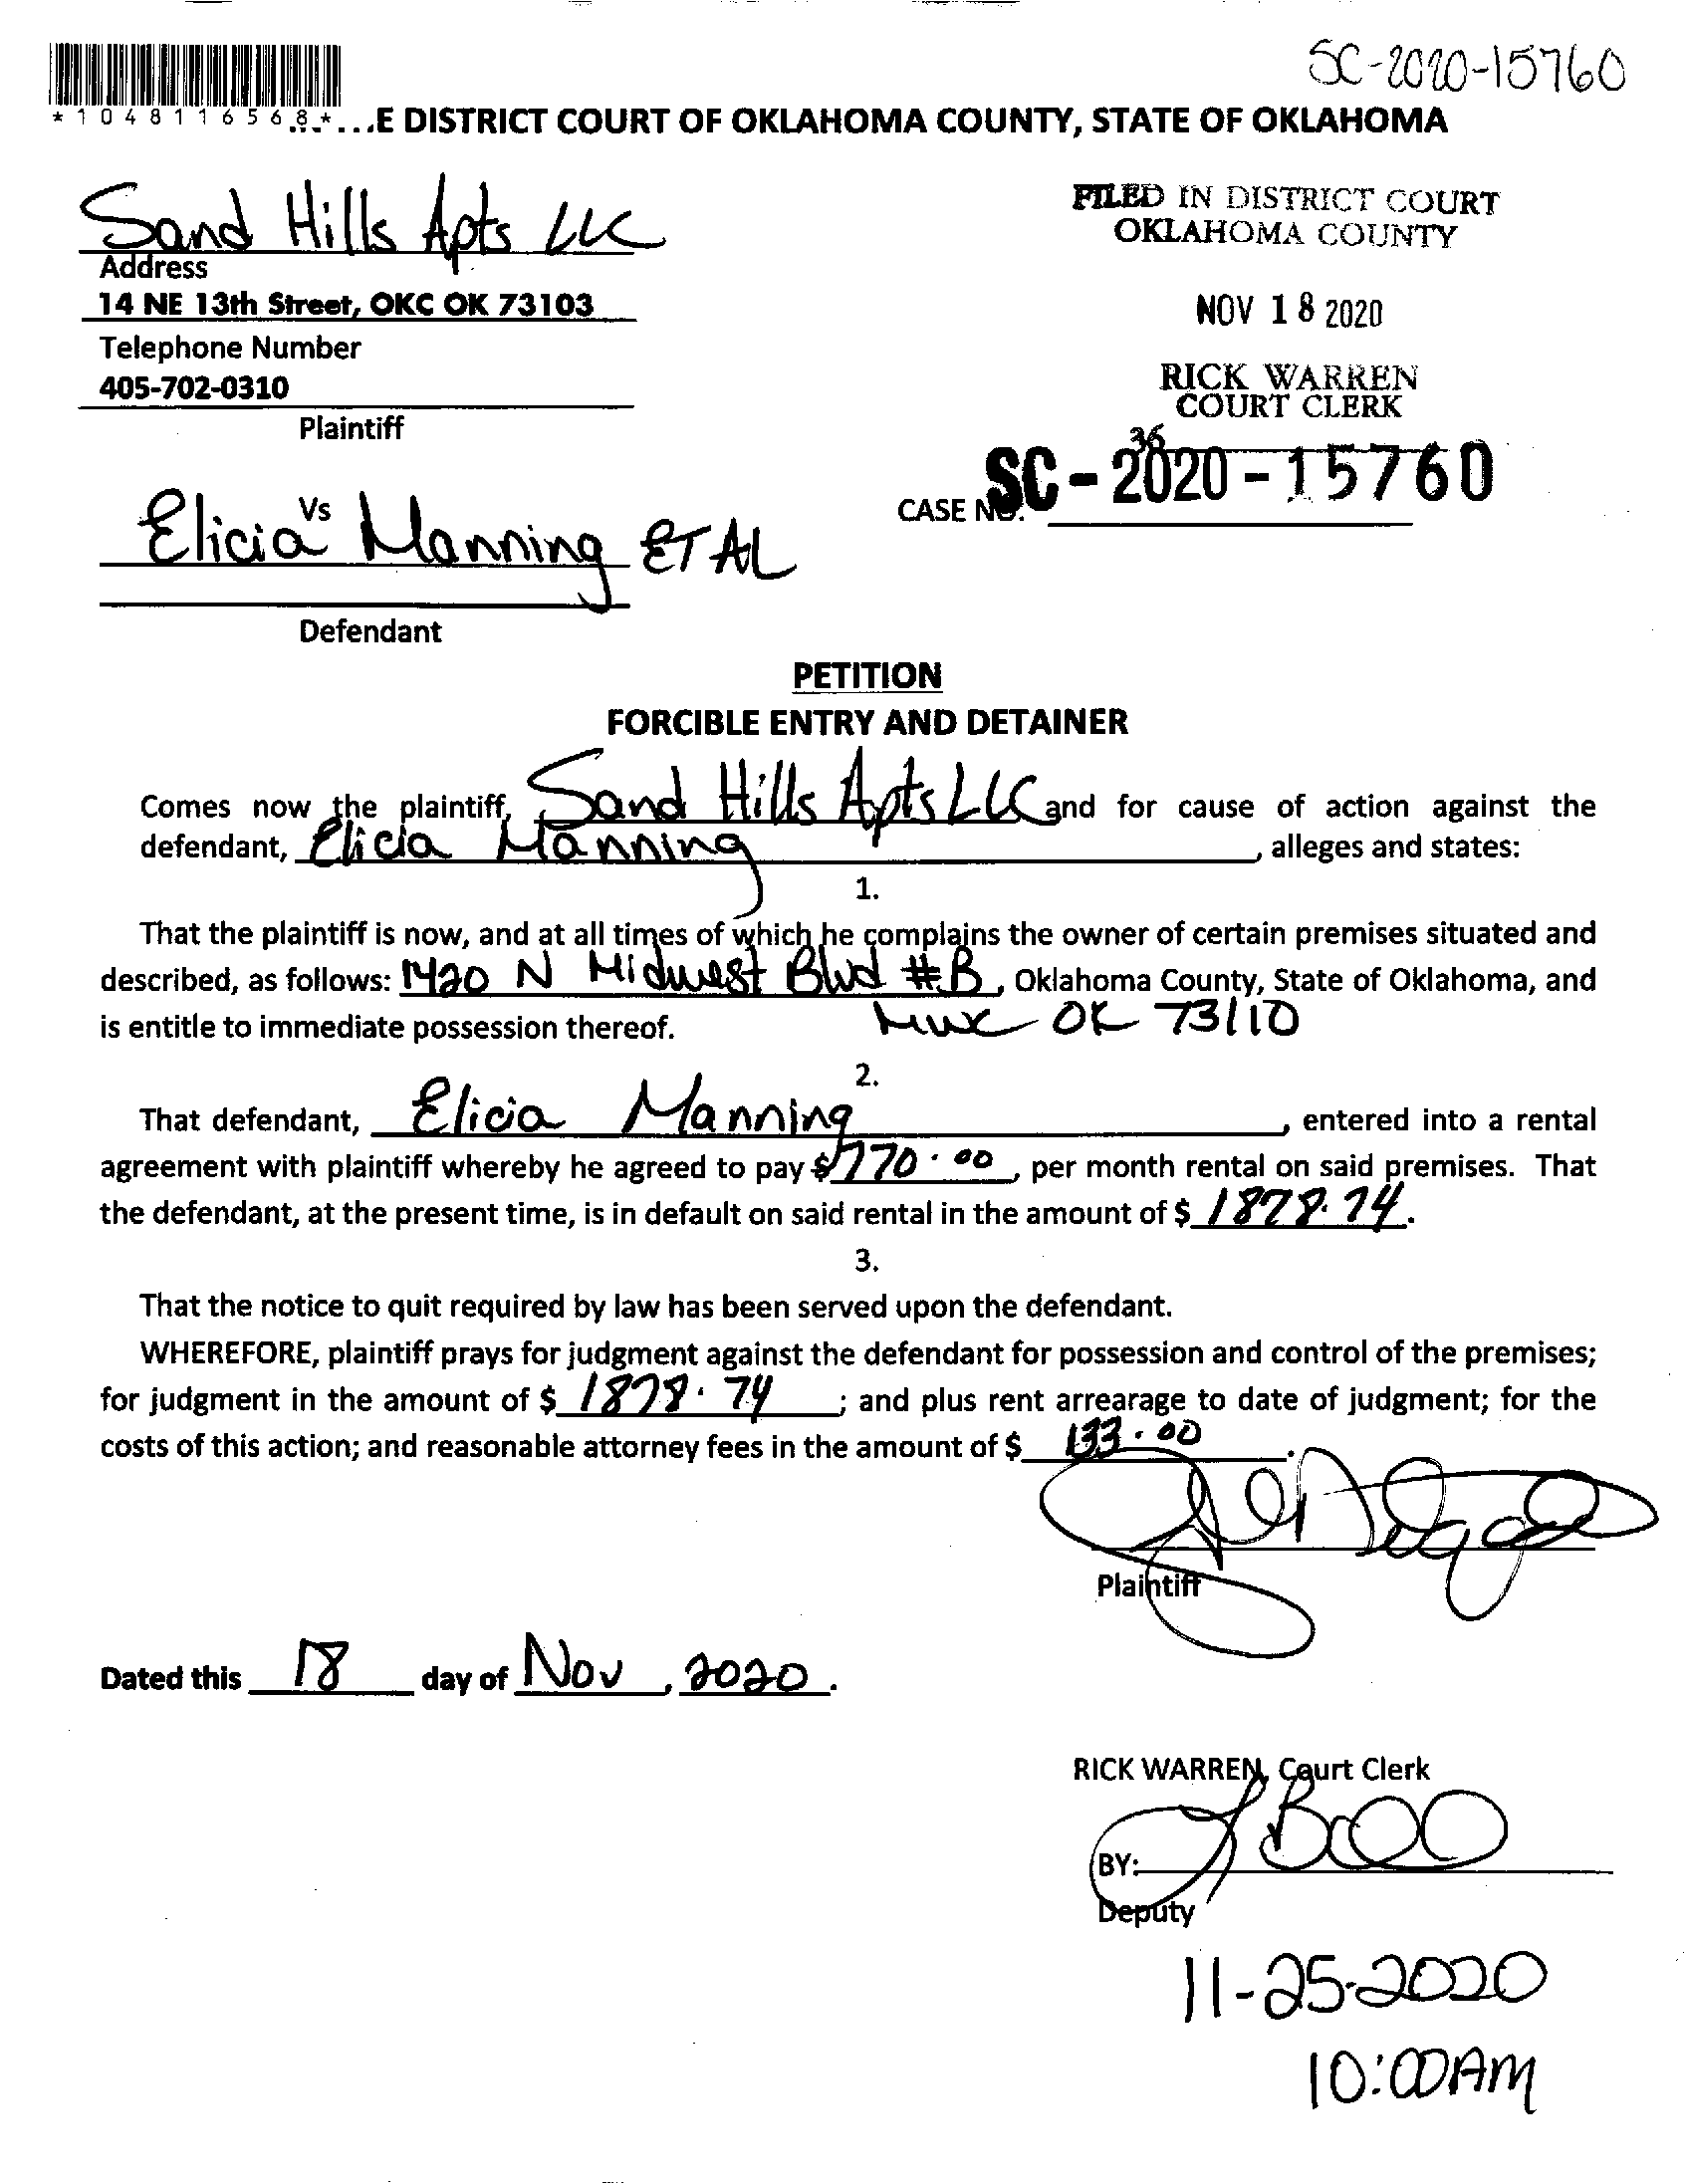 SC-2020-15760
*1048116568*
...E DISTRICT COURT OF OKLAHOMA COUNTY, STATE OF OKLAHOMA
Sand Hills Apts LLC
Address
14 NE 13th Street, OKC OK 73103
Telephone Number
405-702-0310
Plaintiff
FILED IN DISTRICT COURT
OKLAHOMA COUNTY
NOV 18 2020
RICK WARREN
COURT CLERK
36
CASE NO. SC-2020-15760
Vs
Elicia Manning ET AL
Defendant
PETITION
FORCIBLE ENTRY AND DETAINER
Comes now the plaintiff, Sand Hills Apts LLC and for cause of action against the
defendant, Elicia Manning, alleges and states:
1.
That the plaintiff is now, and at all times of which he complains the owner of certain premises situated and
described, as follows: 1420 N Midwest Blvd #B, Oklahoma County, State of Oklahoma, and
is entitle to immediate possession thereof. MWC OK 73110
2.
That defendant, Elicia Manning, entered into a rental
agreement with plaintiff whereby he agreed to pay $770.00, per month rental on said premises. That
the defendant, at the present time, is in default on said rental in the amount of $ 1878.74.
3.
That the notice to quit required by law has been served upon the defendant.
WHEREFORE, plaintiff prays for judgment against the defendant for possession and control of the premises;
for judgment in the amount of $ 1878.74; and plus rent arrearage to date of judgment; for the
costs of this action; and reasonable attorney fees in the amount of $ 133.00.
Plaintiff
Dated this 18 day of Nov, 2020.
RICK WARREN, Court Clerk
BY:
Deputy
11-25-2020
10:00AM